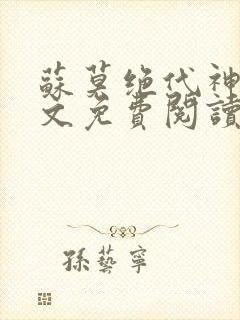 蘇莫绝代神
文免費閱讀
孫藝寧